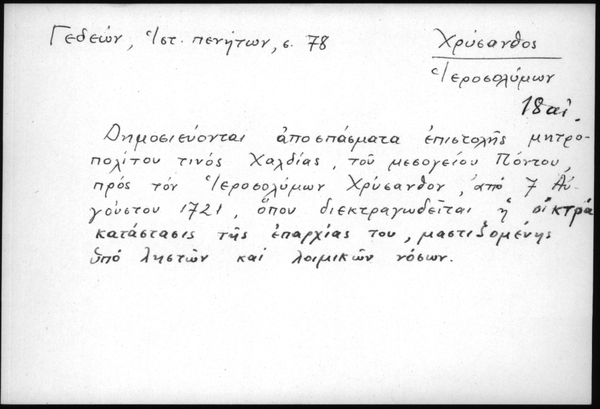 Γεδεών, Ἱστ. πενήτων, σ. 78
Χρύσανθος
Ἱεροσολύμων
18 αἰ.
Δημοσιεύονται ἀποσπάσματα ἐπιστολῆς μητρο-
πολίτου τινός Χαλδίας, τοῦ μεσογείου Πόντου,
πρός τόν Ἱεροσολύμων Χρύσανθον, ἀπό 7 Αὐ-
γούστου 1721, ὅπου διεκτραγωδεῖται ἡ οἰκτρά
κατάστασις τῆς ἐπαρχίας του, μαστιζομένης
ὑπό ληστῶν καί λοιμικῶν νόσων.